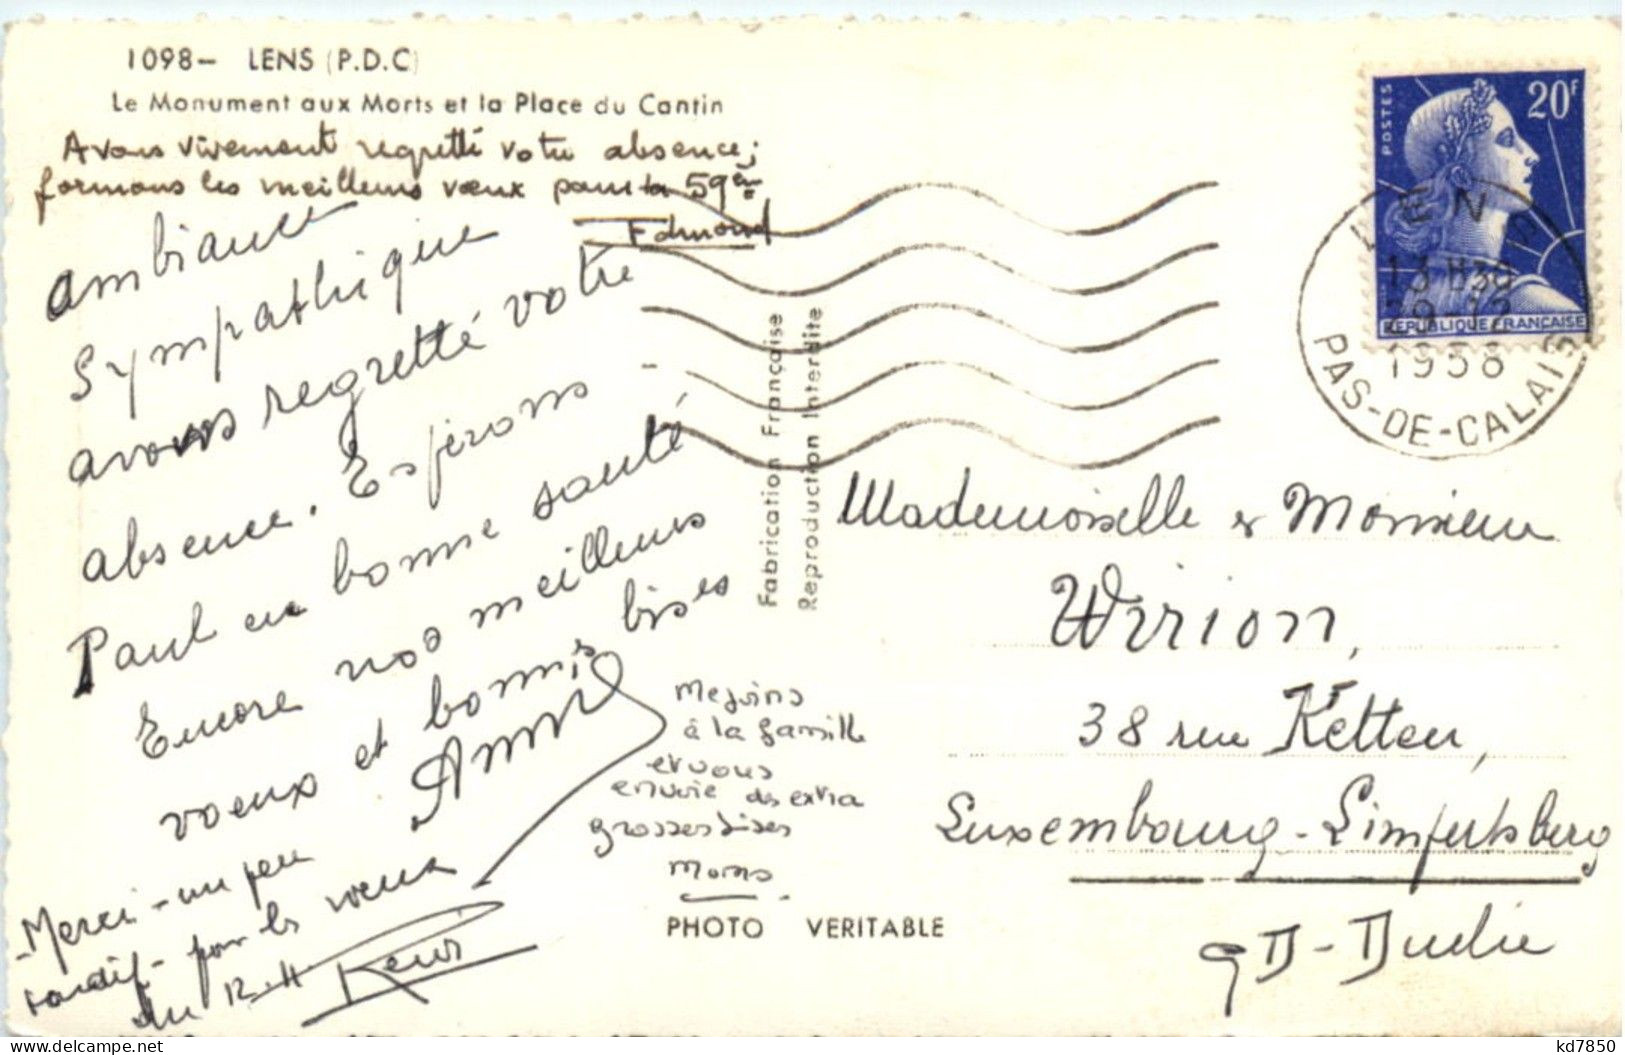 1098- LENS (P.D.C)
Le Monument aux Morts et la Place du Cantin
Avons vivement regretté votre absence;
formons les meilleurs vœux pour la 59ème
Edmond
Ambiance
Sympathique
avons regretté votre
absence. Espérons
Paul en bonne santé
Encore nos meilleurs
voeux et bonnes bises
-Merci - un peu
tardif - pour les voeux
du 12-11
à la famille
et vous
envoie des extra
grosses bises
PHOTO VERITABLE
Fabrication Française
Reproduction Interdite
POSTES
20F
REPUBLIQUE FRANÇAISE
LENS
13 H30
29-12
1958
PAS-DE-CALAIS
Mademoiselle et Monsieur
Wirion,
38 rue Ketten,
Luxembourg-Limpertsberg
GD-Duché
kd7850